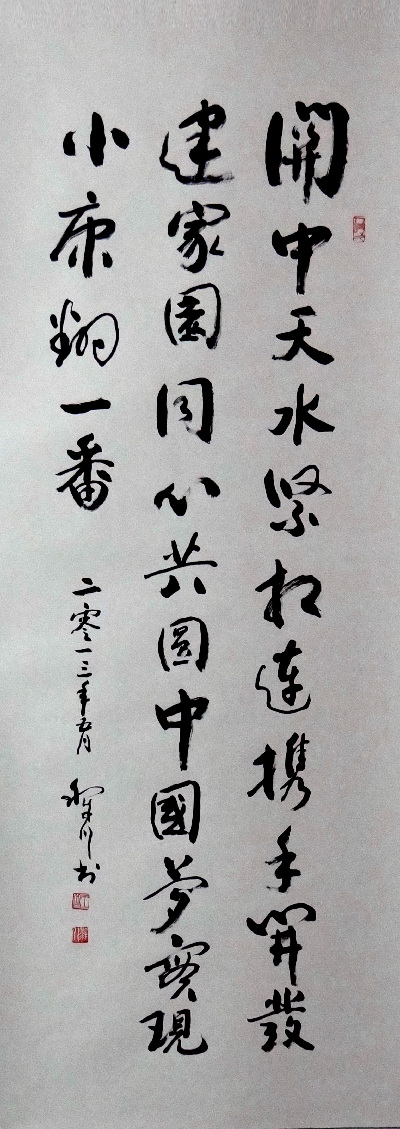 關中天水紧相連携手開發
建家園同心共圓中國夢實現
小康翻一番
二零一三年五月 川书